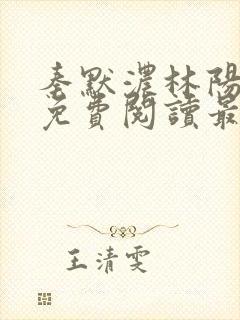 秦默濃林陽
免費閱讀最
王清雯